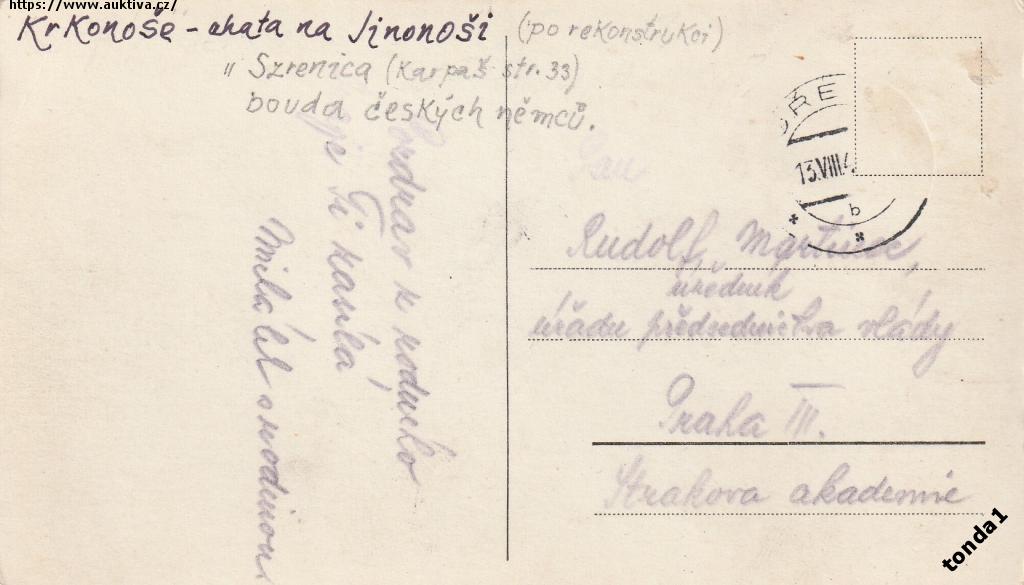 https://www.auktiva.cz/
Krkonoše - chata na Jínonoši (po rekonstrukci)
" Szrenica (Karpaš str. 33)
bouda českých němců.
13.VIII.4
b
Pan
Rudolf Martinec,
úředník
úřadu předsednictva vlády
Praha III.
Strakova akademie
Ti
s rodinou
tonda1